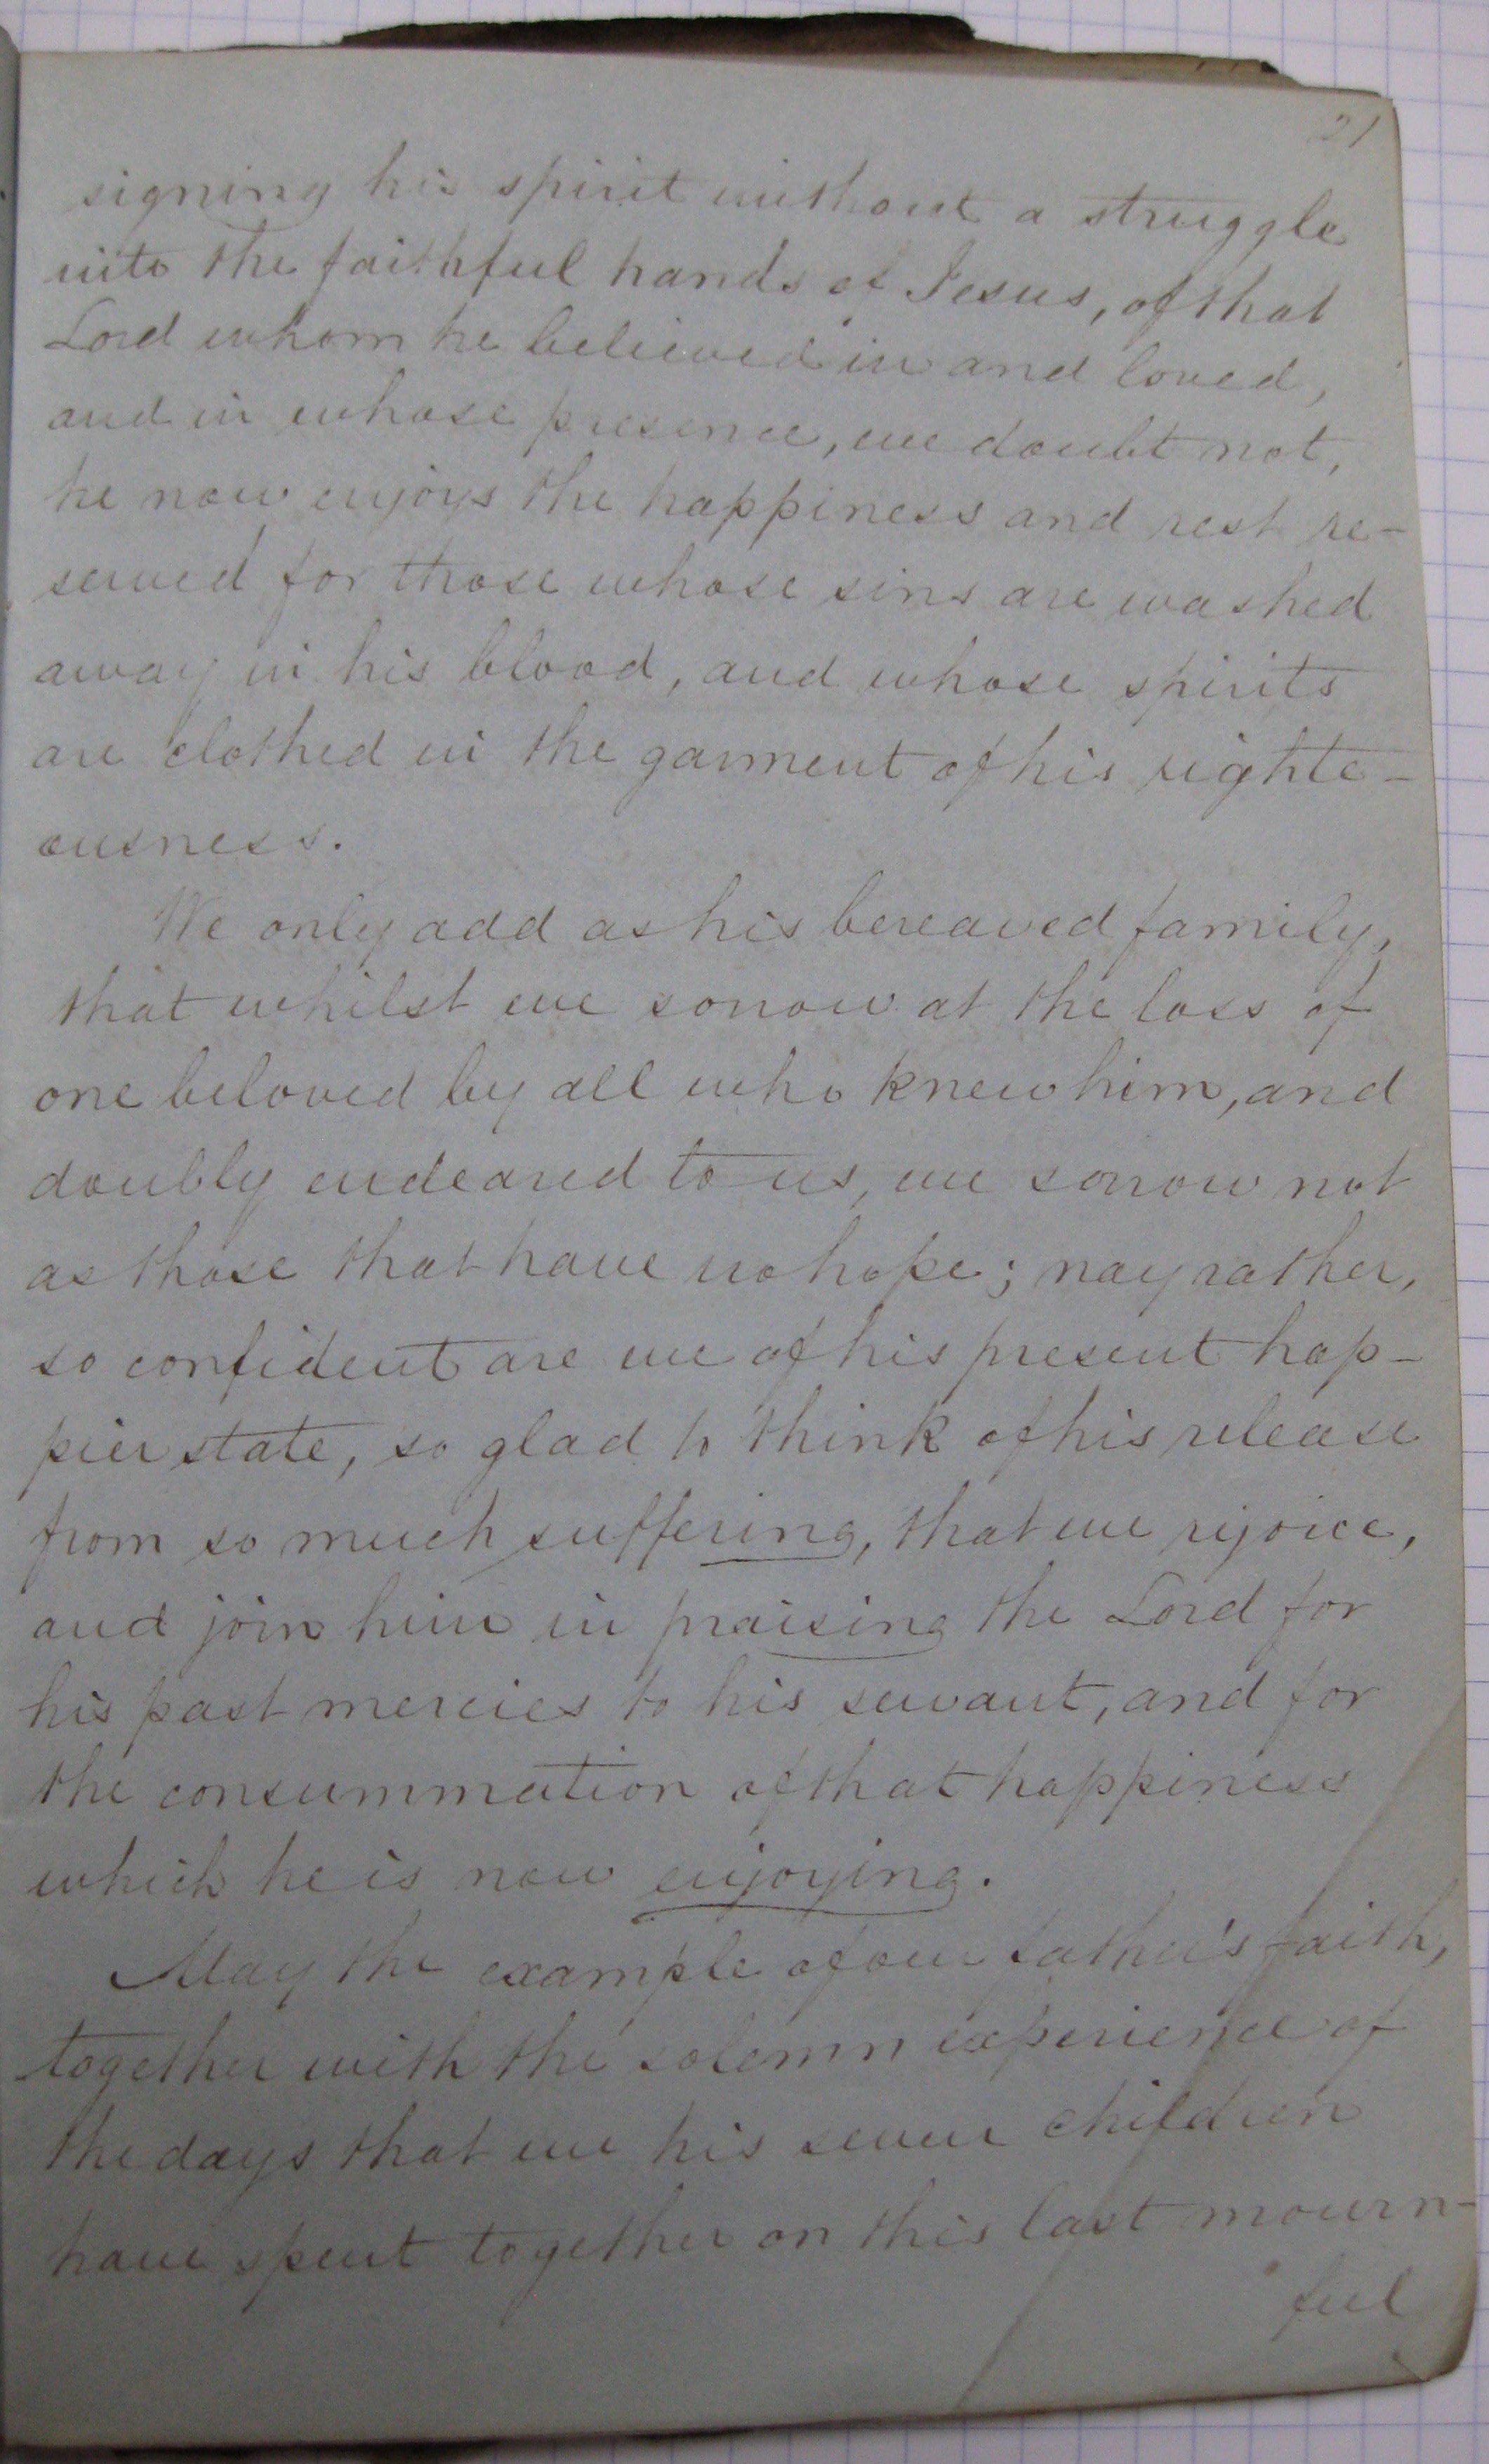 21
signing his spirit without a struggle
into the faithful hands of Jesus, of that
Lord whom he believed in and loved,
and in whose presence, we doubt not,
he now enjoys the happiness and rest re-
served for those whose sins are washed
away in his blood, and whose spirits
are clothed in the garment of his righte-
ousness.
We only add as his bereaved family,
that whilst we sorrow at the loss of
one beloved by all who knew him, and
doubly endeared to us, we sorrow not
as those that have no hope; nay rather,
so confident are we of his present hap-
pier state, so glad to think of his release
from so much suffering, that we rejoice,
and join him in praising the Lord for
his past mercies to his servant, and for
the consummation of that happiness
which he is now enjoying.
May the example of our father's faith,
together with the solemn experience of
the days that we his seven children
have spent together on this last mourn-
ful